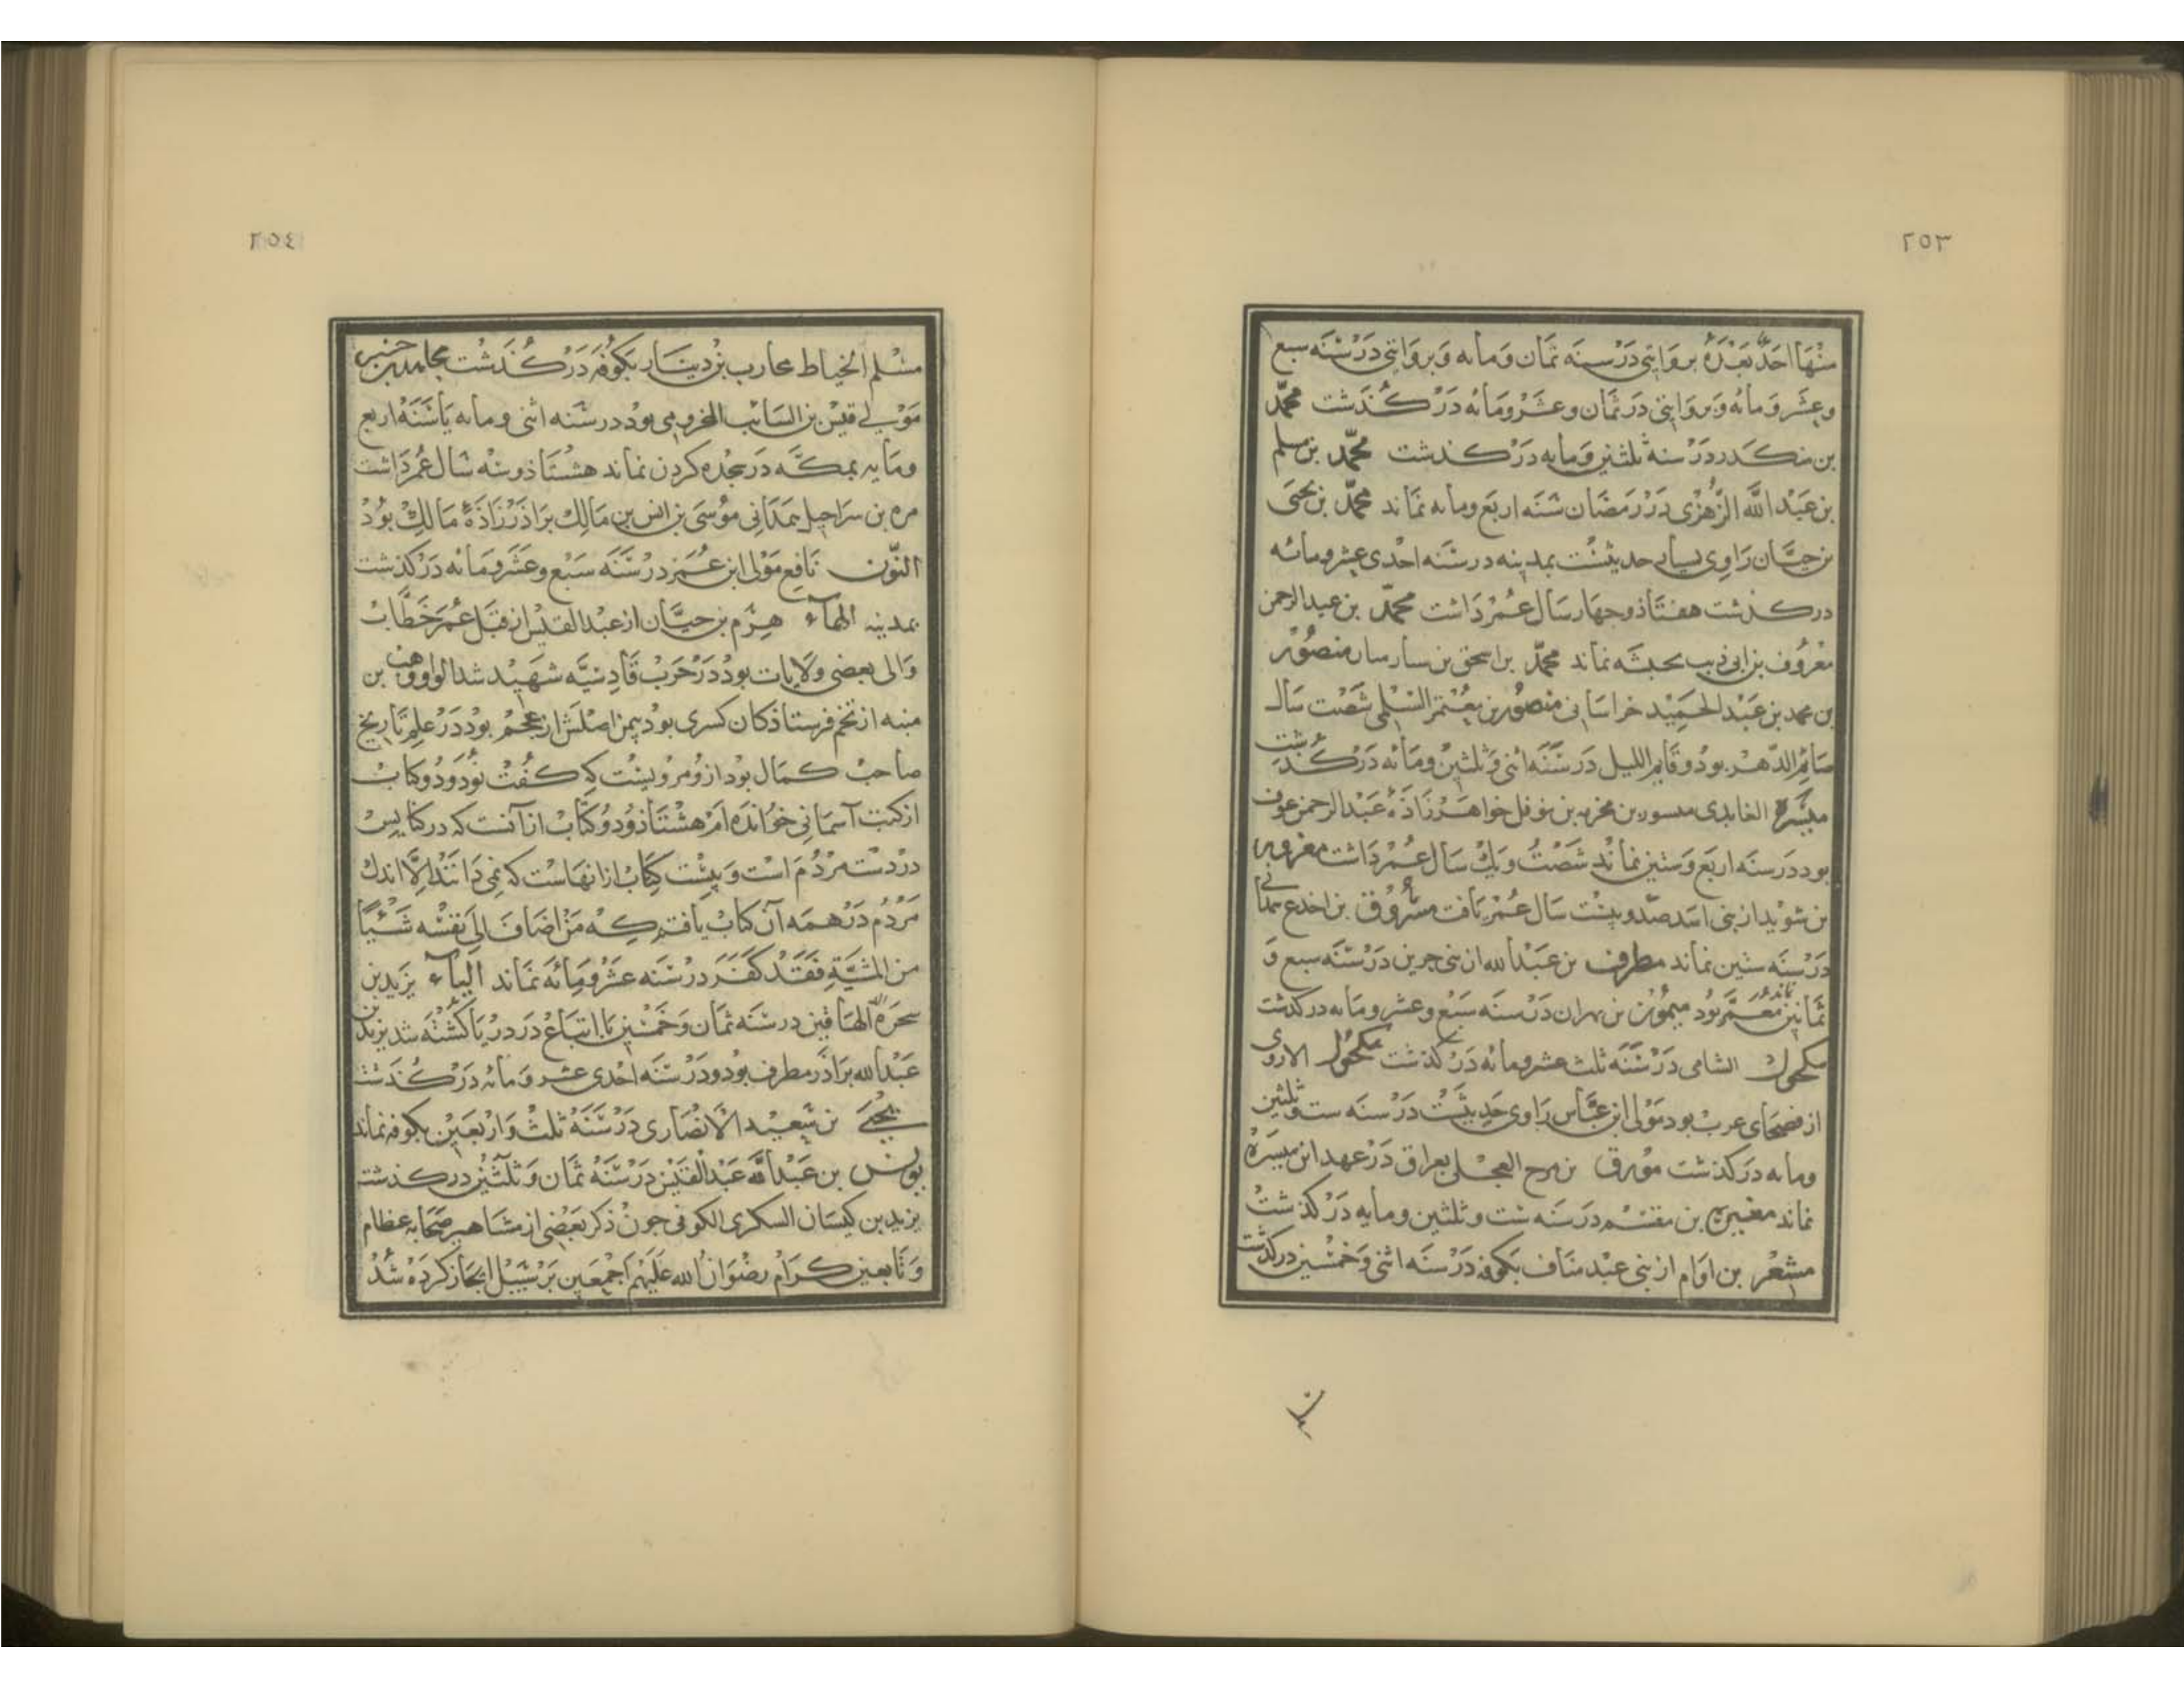 ٢٥٣
منها احد بعده بروایتی در سنه ثمان و مایه و بروایتی در سنه سبع
وعشر و مائه و بروایتی در ثمان وعشر ومائه درکذشت محمد
بن منکدر در سنه ثلثین ومایه درکذشت محمد بن مسلم
بن عبد الله الزهری در رمضان سنه اربع ومایه نماند محمد بن یحیی
بن حیان راوی بسیار حدیثست بمدینه در سنه احدی عشر ومائه
درکذشت هفتاذ وچهار سال عمر داشت محمد بن عبد الرحمن
معروف بن ابی ذیب بحبشه نماند محمد بن اسحق بن سار منصور
بن محمد بن عبد الحمید خراسانی منصور بن معتمر السلمی شصت سال
صائم الدهر بود و قایم اللیل در سنه اثنی وثلثین ومائه درکذشت
میسره العابدی مسور بن مخرمه بن نوفل خواهرزاذه عبد الرحمن عوف
بود در سنه اربع وستین نماند شصت ویک سال عمر داشت
بن سوید از بنی اسد صد وبیست سال عمر یافت مسروق بن اجدع
در سنه ستین نماند مطرف بن عبد الله از بنی در سنه سبع و
ثمانین نماند معمر بود میمون بن مهران در سنه سبع وعشر ومایه درکذشت
مکحول الشامی در سنه ثلث عشر ومائه درکذشت مکحول
از فصحای عرب بود مولی ابن عباس راوی حدیثست در سنه ست وثلثین
ومایه درکذشت مورق بن العجلی بعراق در عهد ابن میسره
نماند مغیره بن مقسم در سنه ست وثلثین ومایه درکذشت
مسعر بن از بنی عبد مناف بکوفه در سنه اثنی وخمسین درکذشت
٢٥٤
مسلم الخیاط محارب بن دینار بکوفه درکذشت مجاهد بن
مولی قیس بن السائب المخزومی بود در سنه اثنی ومایه یا سنه اربع
ومایه بمکه در سجده کردن نماند هشتاذ وسه سال عمر داشت
مره بن سراحیل همدانی موسی بن انس بن مالک براذرزاذه مالک بود
النون نافع مولی ابن عمر در سنه سبع وعشر ومائه درکذشت
بمدینه الهاء هرم بن حیان از عبد القیس از قبل عمر خطاب
والی بعضی ولایات بود در حرب قادسیه شهید شد الواو وهب بن
منبه از تخم فرستاذکان کسری بود بیمن اصلش از عجم بود در علم تاریخ
صاحب کمال بود ازو مرویست که کفت نود ودو کتاب
از کتب آسمانی خوانده ام هشتاذ ودو کتاب از آنست که در کنایس
در دست مردم است وبیست کتاب از انهاست که نمی دانند الا اندک
مردم در همه آن کتاب یافتم که من اضاف الی نفسه شیئا
من المشیة فقد کفر در سنه عشر ومائه نماند الیاء یزید بن
در سنه ثمان وخمسین با اتباع در دریا کشته شد یزید بن
عبد الله براذر مطرف بود ودر سنه احدی عشر ومائه درکذشت
یحیی بن سعید الانصاری در سنه ثلث واربعین بکوفه نماند
یونس بن عبد الله عبد القیس در سنه ثمان وثلثین درکذشت
یزید بن کیسان السکری الکوفی چون ذکر بعضی از مشاهیر صحابه عظام
وتابعین کرام رضوان الله علیهم اجمعین بر سبیل ایجاز کرده شد